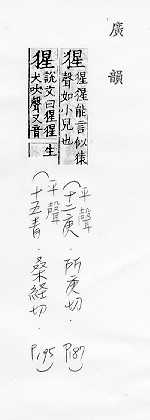 廣韻
猩 猩猩能言似猿聲如小兒也
（平聲十二庚．所庚切．P187）
猩 說文曰猩猩犬吠聲又音生
（平聲十五青．桑經切．P195）